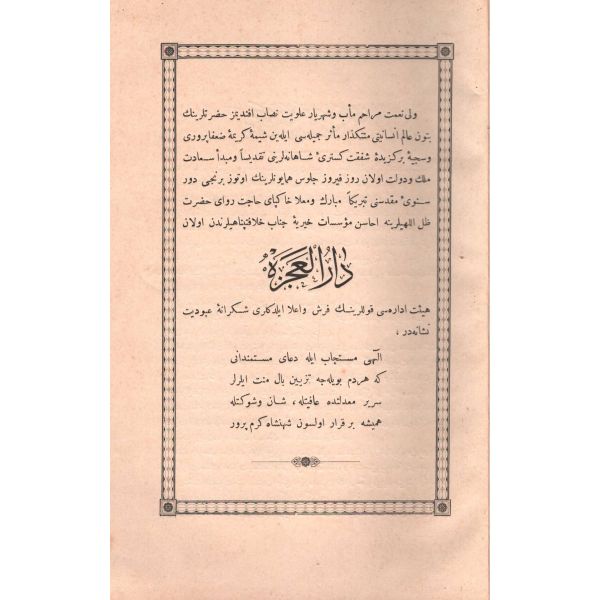 ولی نعمت مراحم مآب و شهریار علویت نصاب افندیمز حضرتلرینك
بتون عالم انسانیتی متشکدار مآثر جمیله‌سی ایله‌ین شیمهٔ کریمهٔ ضعفاپروری
و سجیهٔ برگزیدهٔ شفقت کستریٔ شاهانه‌لرینی تقدیساً و مبدأ سعادت
ملك و دولت اولان روز فیروز جلوس همایونلرینك اوتوز برنجی دور
سنویٔ مقدسنی تبریکاً مبارك و معلا خاکپای حاجت روای حضرت
ظل اللهیلرینه احاسن مؤسسات خیریهٔ جناب خلافتپناهیلرندن اولان
دارالعجزه
هیئت اداره‌سی قوللرینك فرش و اعلا ایلدکلری شکرانهٔ عبودیت
نشانه‌در ،
الٓهی مستجاب ایله دعای مستمندانی
که هردم بویله‌جه تزیین بال منت ایلرلر
سریر معدلتده عافیتله ، شان و شوکتله
همیشه برقرار اولسون شهنشاه کرم پرور